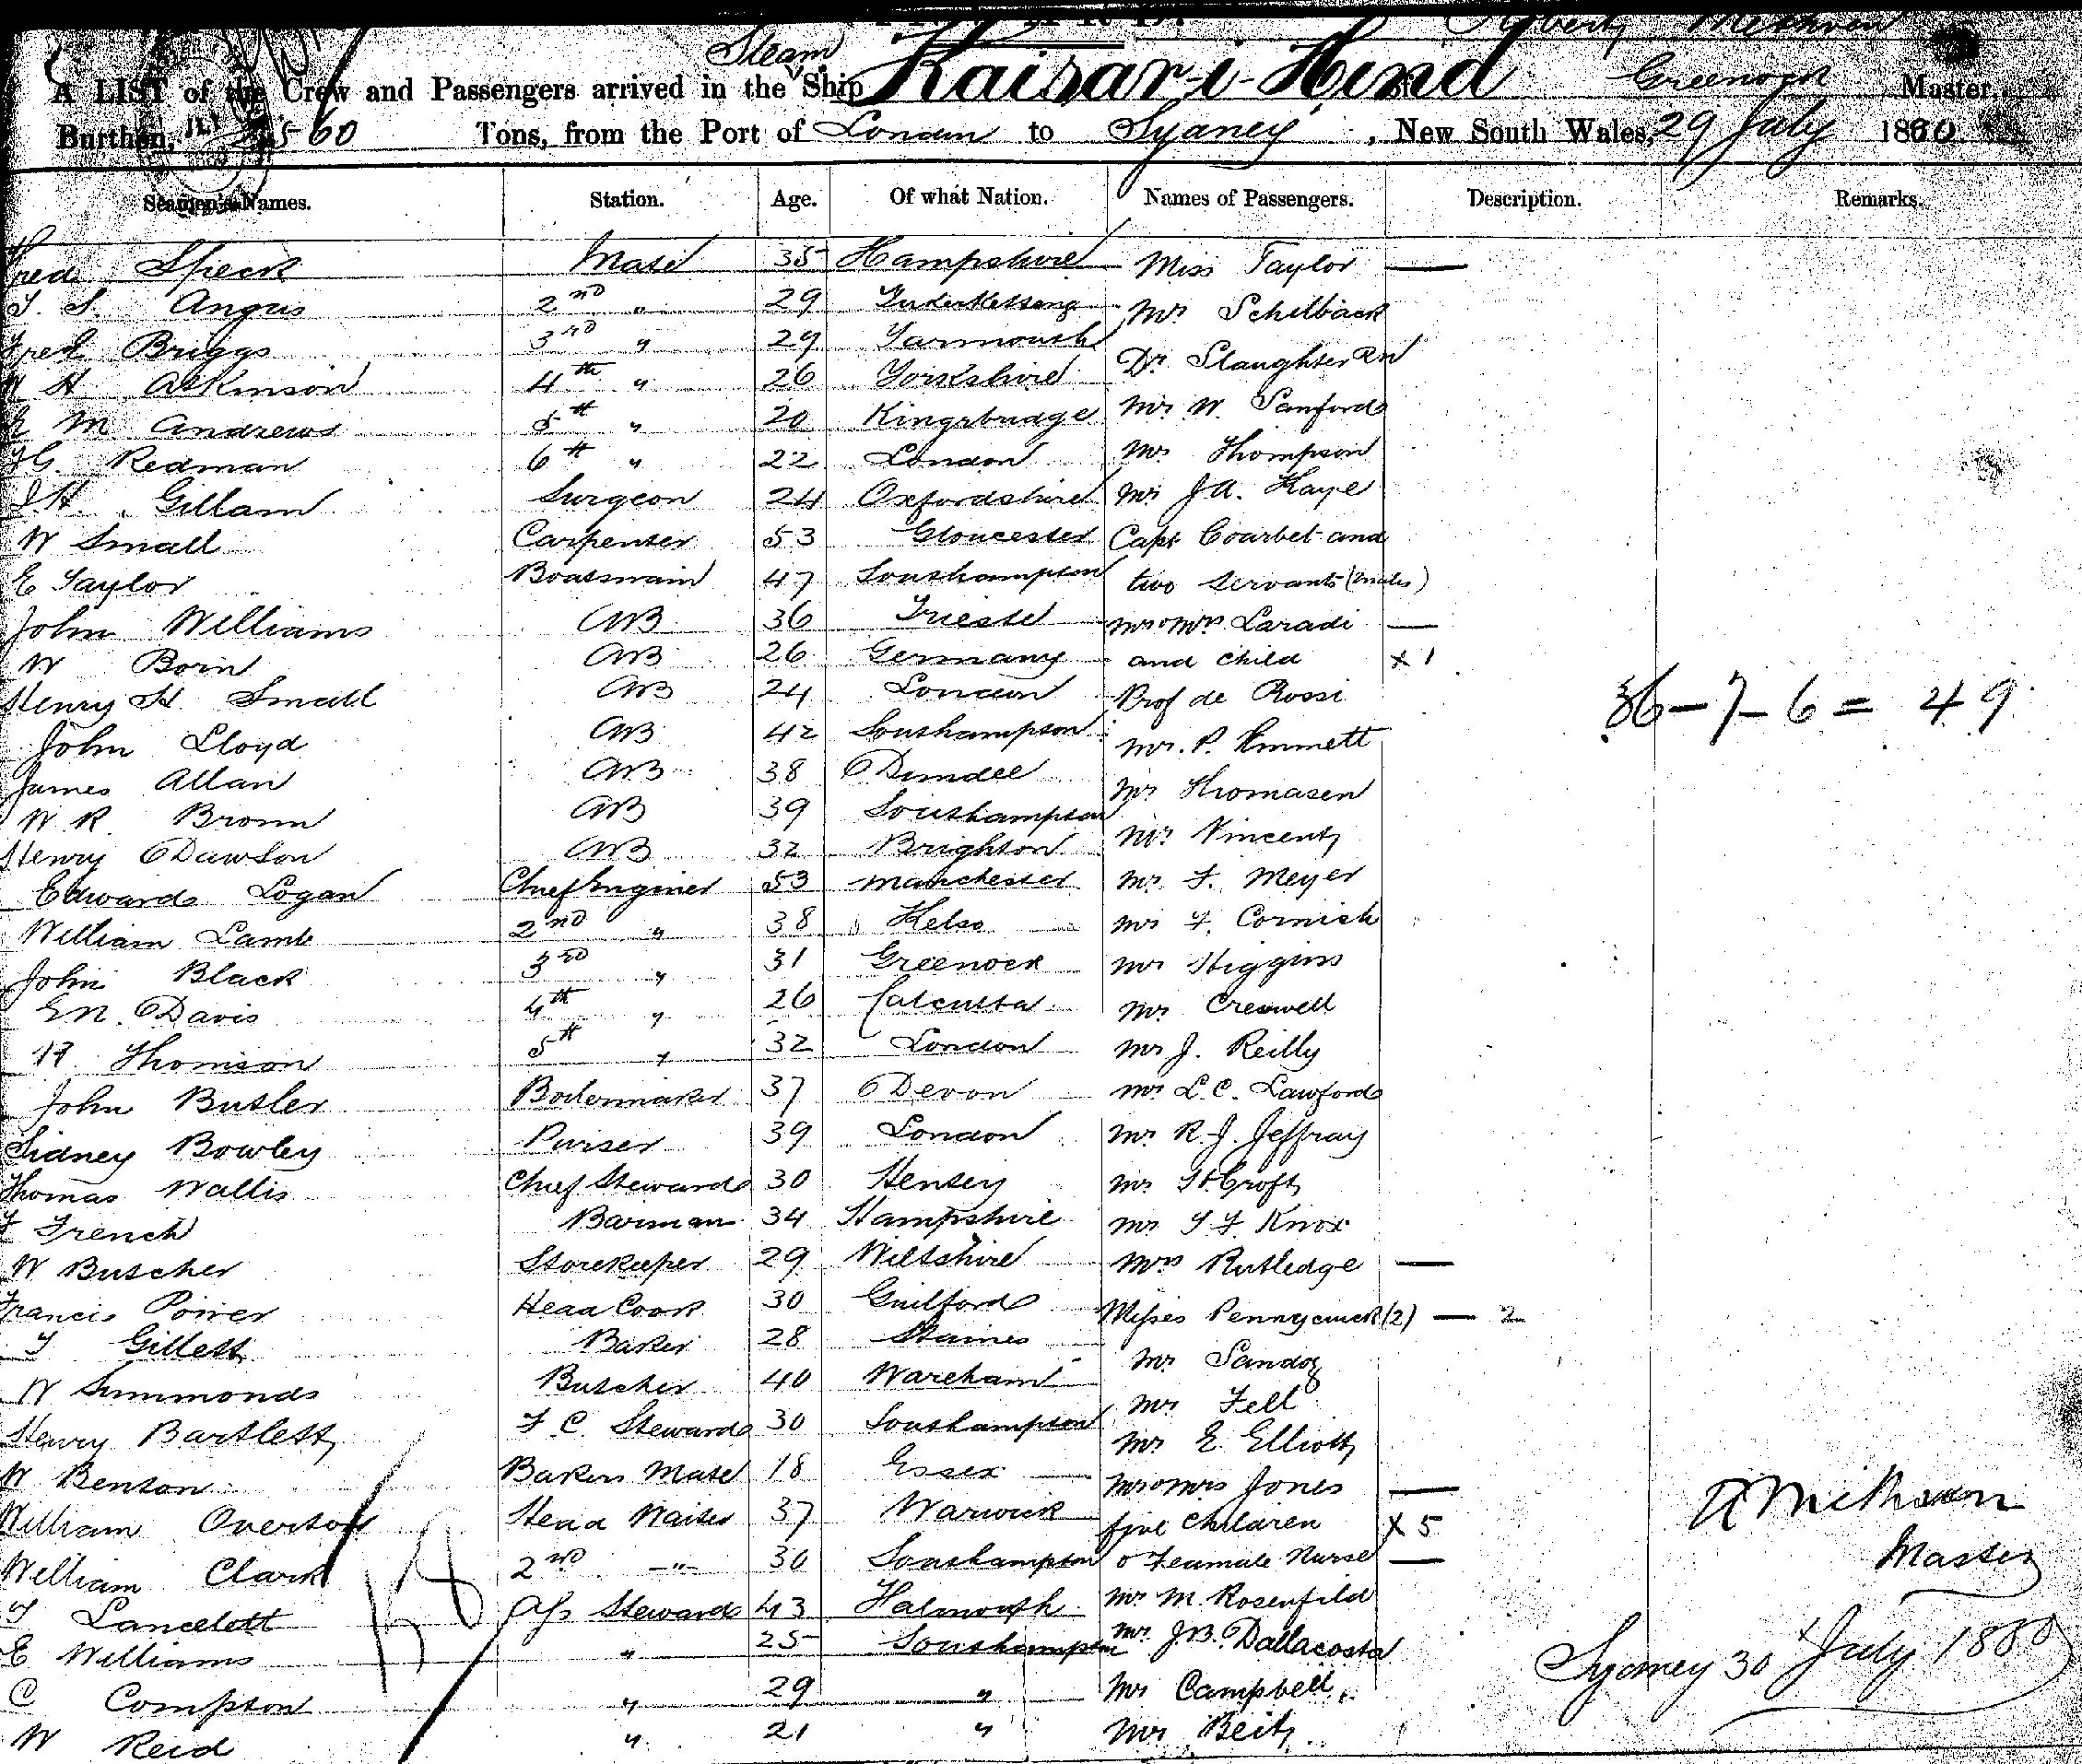 Steam
A LIST of the Crew and Passengers arrived in the Ship Kaisar-i-Hind Greenock Master,
Burthen, Tons, from the Port of London to Sydney, New South Wales, 29 July 1880
Seamen's Names. Station. Age. Of what Nation. Names of Passengers. Description. Remarks.
Fred Speck Mate 35 Hampshire Miss Taylor —
Angus 2nd " 29 Mr Schilback
Fred Briggs 3rd " 29 Yarmouth Dr Slaughter RN
W H Atkinson 4th " 26 Yorkshire Mr W. Samford
E M Andrews 5th " 20 Kingsbridge Mr Thompson
Redman 6th " 22 London Mr J.A. Kaye
Gillam Surgeon 24 Oxfordshire Capt Courbet and
W Small Carpenter 53 Gloucester two servants (males)
E Taylor Boatswain 47 Southampton Mr & Mrs Laradi —
John Williams AB 36 Trieste and child x 1
W Born AB 26 Germany Prof de Rossi
Henry H Small AB 24 London Mr. P. Emmett
John Lloyd AB 42 Southampton Mr Thomasen
James Allan AB 38 Dundee Mr Vincent
W R Brown AB 39 Southampton Mr F. Meyer
Henry Dawson AB 32 Brighton Mr F. Cornish
Edward Logan Chief Enginer 53 Manchester Mr Higgins
William Lamb 2nd " 38 Kelso Mr Creswell
John Black 3rd " 31 Greenock Mr J. Reilly
Davis 4th " 26 Calcutta Mr L.C. Lawford
Thomson 5th " 32 London Mr R.J. Jeffray
John Butler Boilermaker 37 Devon Mr H. Croft
Sidney Bowley Purser 39 London Mr T F. Knox
Thomas Wallis Chief Steward 30 Hensey Mrs Rutledge —
F French Barman 34 Hampshire Misses Pennycuick (2) — 2
W Butcher Storekeeper 29 Wiltshire Mr Sandoz
Francis Power Head Cook 30 Guilford Mr Fell
T Gillett Baker 28 Staines Mr E. Elliott
W Simmonds Butcher 40 Wareham Mr & Mrs Jones —
Henry Bartlett F C. Steward 30 Southampton five children x 5
W Benton Bakers Mate 18 Essex & Feamale Nurse —
William Overton Head Waiter 37 Warwick Mr M. Rosenfild
William Clark 2nd " 30 Southampton Mr J.B. Dallacosta
T Lancelott Ass Steward 43 Falmouth Mr Campbell
E Williams " 25 Southampton Mr Beitz
C Compton " 29 "
W Reid " 21 "
36 – 7 – 6 = 49
Master
Sydney 30 July 1880